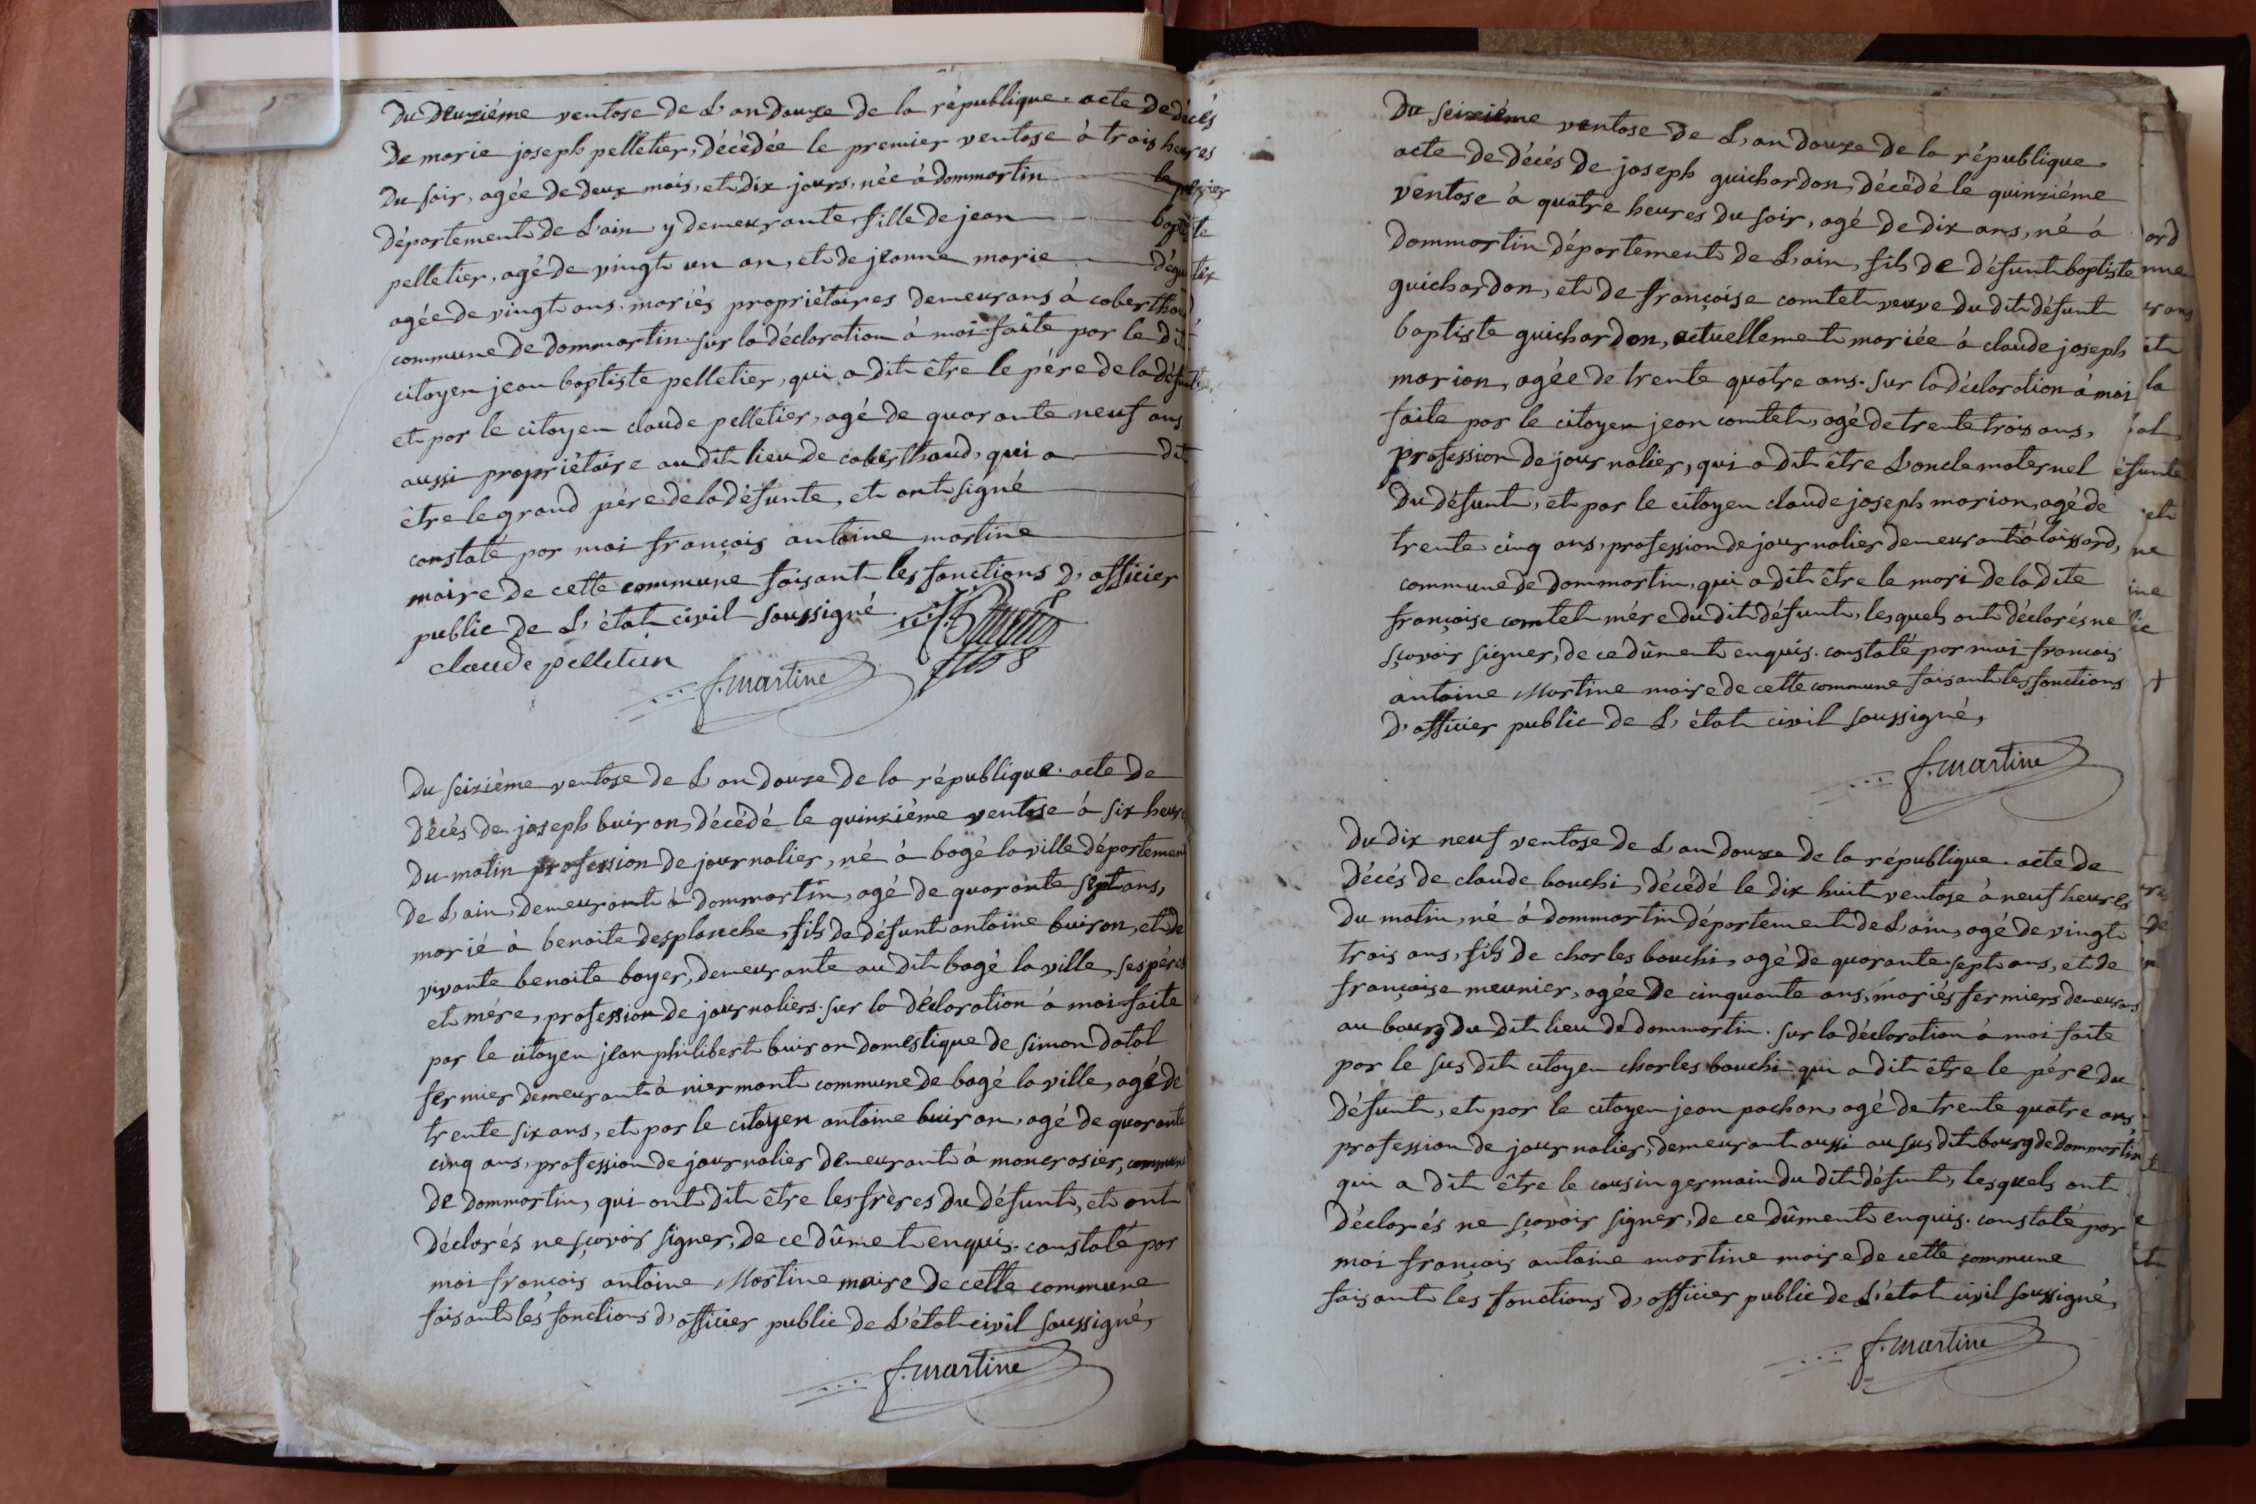 du deuxiéme ventose de L'an douze de la république. acte de décés
de marie joseph pelletier, décédée le premier ventose à trois heures
du soir, agée de deux mois, et dix jours, née à dommartin
département de L'ain y demeurante, fille de jean baptiste
pelletier, agé de vingt un an, et de jeanne marie
agée de vingt ans, mariés propriétaires demeurans à coberthoud
commune de dommartin sur la déclaration à moi faite par le dit
citoyen jean baptiste pelletier, qui a dit être le pére de la défunte
et par le citoyen claude pelletier, agé de quarante neuf ans
aussi propriétaire audit lieu de coberthoud, qui a dit
être le grand pére de la défunte, et ont signé
constaté par moi françois antoine martine
maire de cette commune faisant les fonctions d'officier
public de L'état civil soussigné
claude pelletier
f. martine
du seiziéme ventose de L'an douze de la république. acte de
décés de joseph buiron, décédé le quinziéme ventose à six heures
du matin profession de journalier, né à bagé la ville département
de L'ain, demeurant à dommartin, agé de quarante sept ans,
marié à benoite desplanche, fils de défunt antoine buiron, et de
vivante benoite boyer, demeurante au dit bagé la ville, ses péres
et mére, profession de journaliers. sur la déclaration à moi faite
par le citoyen jean philibert buiron domestique de simon datal
fermier demeurant à niermont commune de bagé la ville, agé de
trente six ans, et par le citoyen antoine buiron, agé de quarante
cinq ans, profession de journalier demeurant à moncrosier, commune
de dommartin, qui ont dit être les frères du défunt, et ont
déclarés ne sçavoir signer, de ce dûment enquis. constaté par
moi françois antoine Martine maire de cette commune
faisant les fonctions d'officier public de L'état civil soussigné,
f. martine
du seiziéme ventose de L'an douze de la république.
acte de décés de joseph guichardon, décédé le quinziéme
ventose à quatre heures du soir, agé de dix ans, né à
dommartin département de L'ain, fils de défunt baptiste
guichardon, et de françoise comtet veuve du dit défunt
baptiste guichardon, actuellement mariée à claude joseph
marion, agée de trente quatre ans. sur la déclaration à moi
faite par le citoyen jean comtet, agé de trente trois ans,
profession de journalier, qui a dit être L'oncle maternel
du défunt, et par le citoyen claude joseph marion, agé de
trente cinq ans, profession de journalier demeurant à loissard,
commune de dommartin, qui a dit être le mari de la dite
françoise comtet mére du dit défunt, lesquels ont déclarés ne
sçavoir signer, de ce dûment enquis. constaté par moi françois
antoine Martine maire de cette commune faisant les fonctions
d'officier public de L'état civil soussigné,
f. martine
du dix neuf ventose de L'an douze de la république. acte de
décés de claude bouchi, décédé le dix huit ventose à neuf heures
du matin, né à dommartin département de L'ain, agé de vingt
trois ans, fils de charles bouchi, agé de quarante sept ans, et de
françoise meunier, agée de cinquante ans, mariés fermiers demeurans
au bourg du dit lieu de dommartin. sur la déclaration à moi faite
par le sus dit citoyen charles bouchi qui a dit être le pére du
défunt, et par le citoyen jean pochon, agé de trente quatre ans
profession de journalier, demeurant aussi au sus dit bourg de dommartin
qui a dit être le cousin germain du dit défunt, lesquels ont
déclarés ne sçavoir signer, de ce dûment enquis. constaté par
moi françois antoine martine maire de cette commune
faisant les fonctions d'officier public de L'état civil soussigné,
f. martine